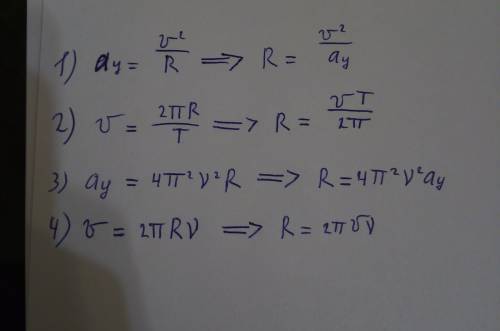 1) aу = υ²/R ⟹ R = υ²/aу
2) υ = 2πR/T ⟹ R = υT/2π
3) aу = 4π²ν²R ⟹ R = 4π²ν²aу
4) υ = 2πRν ⟹ R = 2πυν